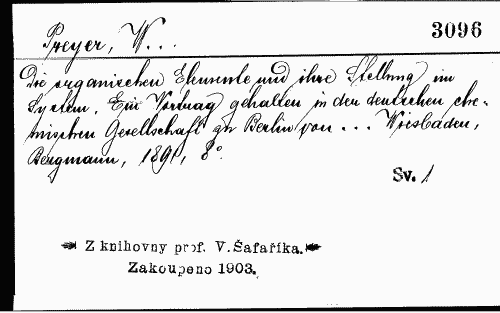 3096
Preyer, W...
Die organischen Elemente und ihre Stellung im
System. Ein Vortrag gehalten in der deutschen che-
mischen Gesellschaft zu Berlin von ... Wiesbaden,
Bergmann, 1891, 8°.
Sv. 1
Z knihovny prof. V. Šafaříka.
Zakoupeno 1903.